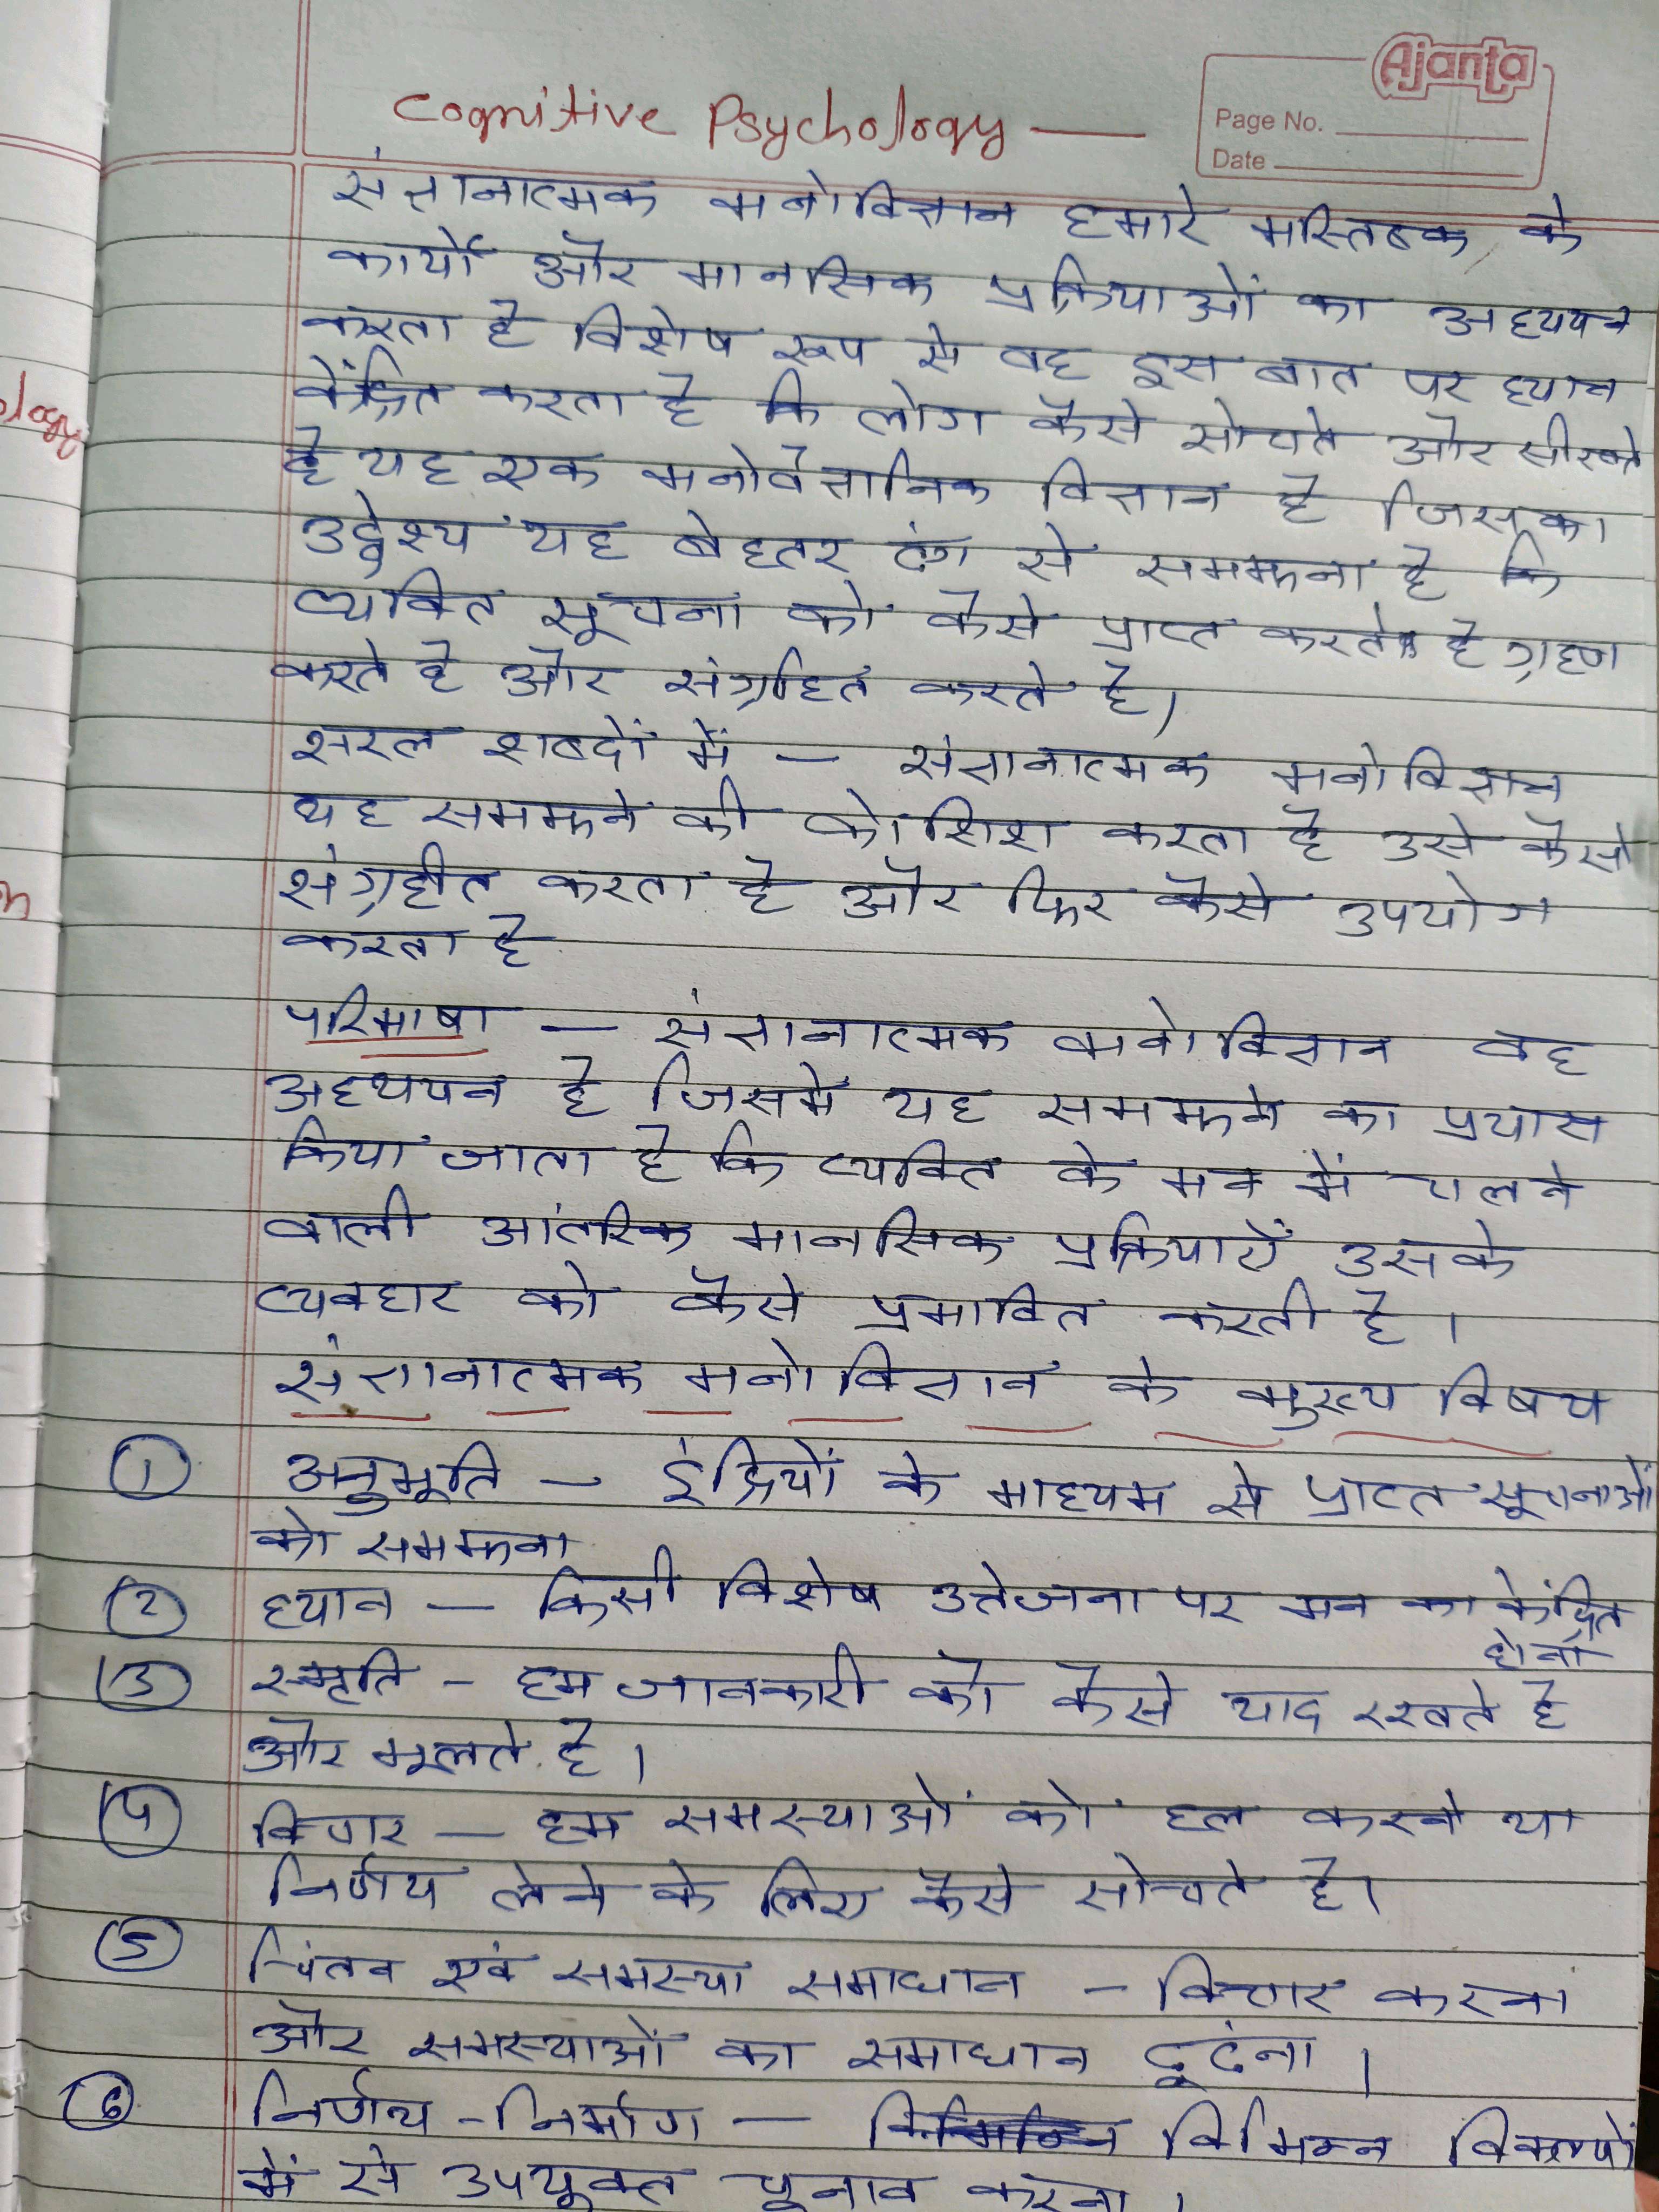 Ajanta
Page No.
Date
Cognitive Psychology —
संज्ञानात्मक मनोविज्ञान हमारे मस्तिष्क के
कार्यों और मानसिक प्रक्रियाओं का अध्ययन
करता है विशेष रूप से वह इस बात पर ध्यान
केंद्रित करता है कि लोग कैसे सोचते और सीखते
है यह एक मनोवैज्ञानिक विज्ञान है जिसका
उद्देश्य यह बेहतर ढंग से समझना है कि
व्यक्ति सूचना को कैसे प्राप्त करते है ग्रहण
करते है और संग्रहित करते है।
सरल शब्दों में — संज्ञानात्मक मनोविज्ञान
यह समझने की कोशिश करता है उसे कैसे
संग्रहीत करता है और फिर कैसे उपयोग
करता है
परिभाषा — संज्ञानात्मक मनोविज्ञान वह
अध्ययन है जिसमें यह समझने का प्रयास
किया जाता है कि व्यक्ति के मन में चलने
वाली आंतरिक मानसिक प्रक्रियाएँ उसके
व्यवहार को कैसे प्रभावित करती है ।
संज्ञानात्मक मनोविज्ञान के मुख्य विषय
① अनुभूति — इंद्रियों के माध्यम से प्राप्त सूचनाओं
को समझना
② ध्यान — किसी विशेष उत्तेजना पर मन का केंद्रित
होना
③ स्मृति - हम जानकारी को कैसे याद रखते है
और भूलते है ।
④ विचार — हम समस्याओं को हल करने या
निर्णय लेने के लिए कैसे सोचते है।
⑤ चिंतन एवं समस्या समाधान - विचार करना
और समस्याओं का समाधान ढूढंना ।
⑥ निर्णय -निर्माण — विभिन्न विकल्पों
में से उपयुक्त चुनाव करना ।
ology
n